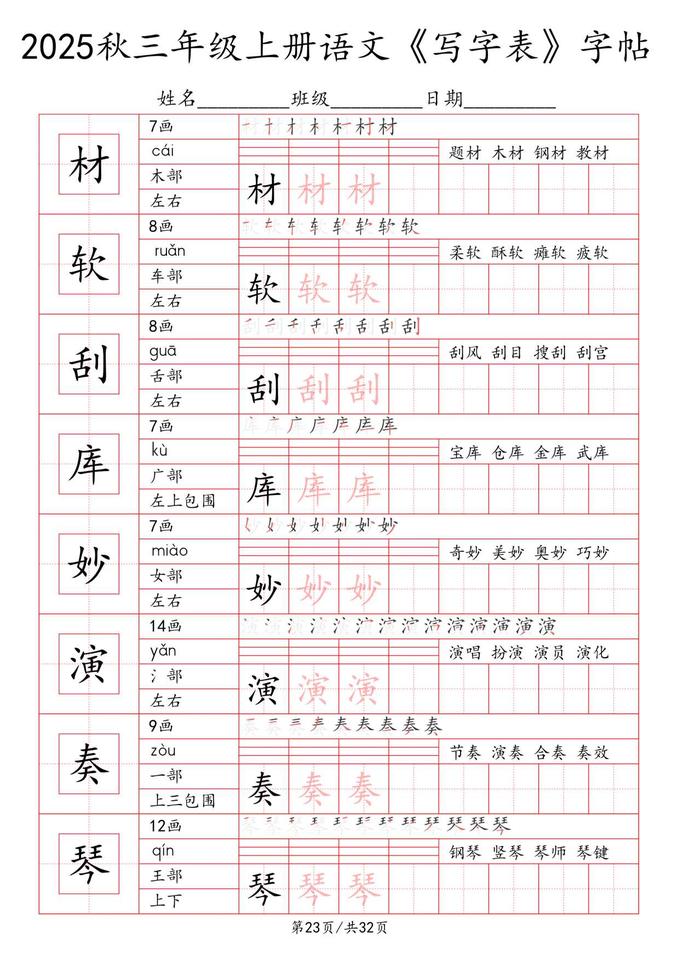 2025秋三年级上册语文《写字表》字帖
姓名_________班级_________日期_________
材
7画
材
cái
题材 木材 钢材 教材
木部
左右
材 材 材
软
8画
软
ruǎn
柔软 酥软 瘫软 疲软
车部
左右
软 软 软
刮
8画
刮
guā
刮风 刮目 搜刮 刮宫
舌部
左右
刮 刮 刮
库
7画
库
kù
宝库 仓库 金库 武库
广部
左上包围
库 库 库
妙
7画
妙
miào
奇妙 美妙 奥妙 巧妙
女部
左右
妙 妙 妙
演
14画
演
yǎn
演唱 扮演 演员 演化
氵部
左右
演 演 演
奏
9画
奏
zòu
节奏 演奏 合奏 奏效
一部
上三包围
奏 奏 奏
琴
12画
琴
qín
钢琴 竖琴 琴师 琴键
王部
上下
琴 琴 琴
第23页/共32页